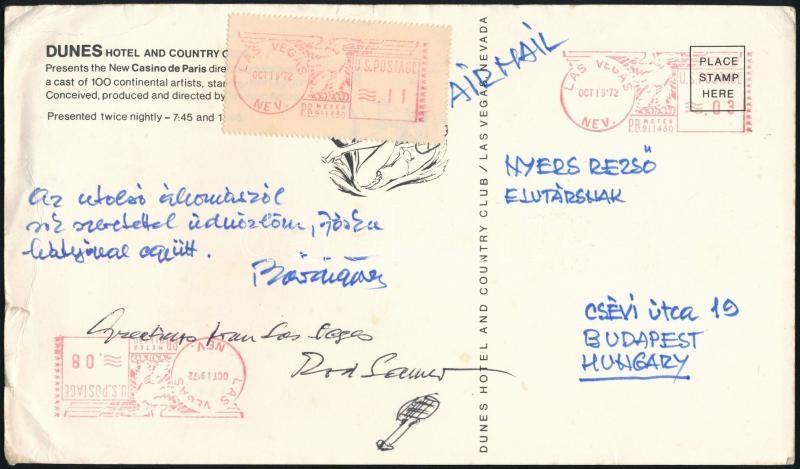 DUNES HOTEL AND COUNTRY C
Presents the New Casino de Paris dire
a cast of 100 continental artists, star
Conceived, produced and directed by
Presented twice nightly – 7:45 and 1
LAS VEGAS
OCT 19 '72
NEV.
U.S. POSTAGE
.11
PB METER
P.B. 911450
AIRMAIL
LAS VEGAS
OCT 19 '72
NEV.
U.S. POSTAGE
.03
PB METER
P.B. 911450
PLACE
STAMP
HERE
Az utolsó állomásról
sok szeretettel üdvözlöm,
együtt.
Greetings from Las Vegas
Rod
LAS VEGAS
OCT 19 '72
NEV.
U.S. POSTAGE
.08
PB METER
DUNES HOTEL AND COUNTRY CLUB / LAS VEGAS, NEVADA
NYERS REZSŐ
ELVTÁRSNAK
CSÉVI ÚTCA 19
BUDAPEST
HUNGARY